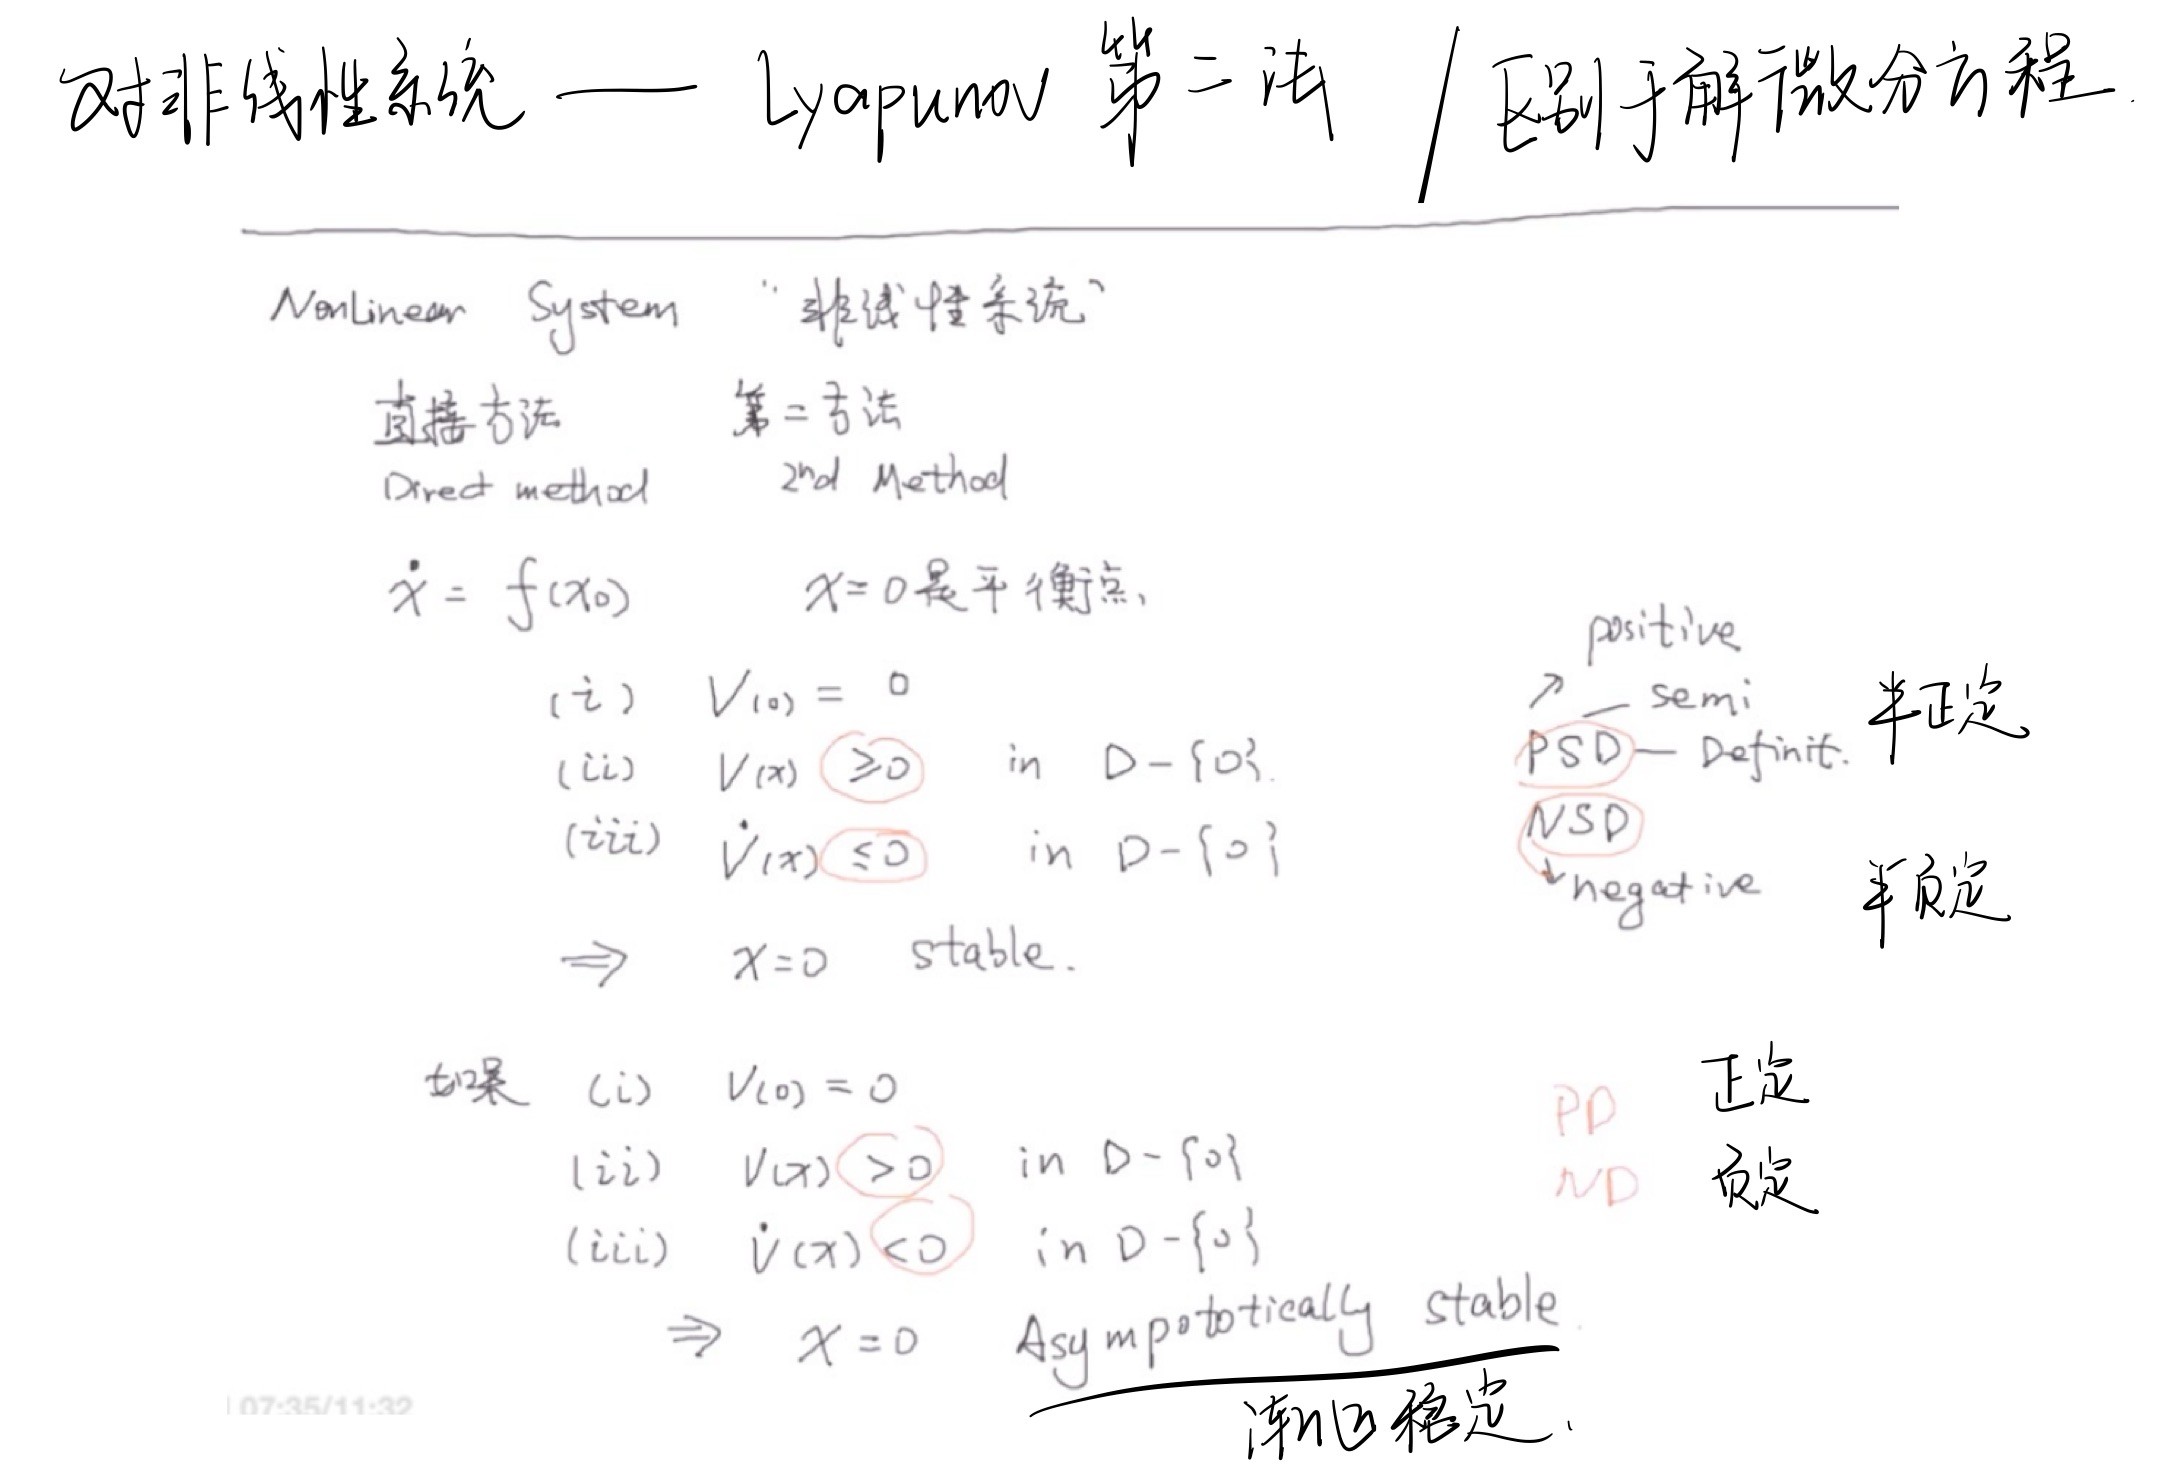 对非线性系统 —— Lyapunov 第二法 / 区别于解微分方程.
NonLinear System "非线性系统"
直接方法 第二方法
Direct method 2nd Method
ẋ = f(x₀) x=0是平衡点.
positive
(i) V(0) = 0
semi 半正定
(ii) V(x) ≥0 in D-{0}.
PSD — Definit.
(iii) V̇(x) ≤0 in D-{0}
NSD
negative 半负定
⇒ x=0 stable.
如果 (i) V(0) = 0
PD 正定
(ii) V(x) >0 in D-{0}
ND 负定
(iii) V̇(x) <0 in D-{0}
⇒ x=0 Asympototically stable.
渐近稳定.
07:35/11:32